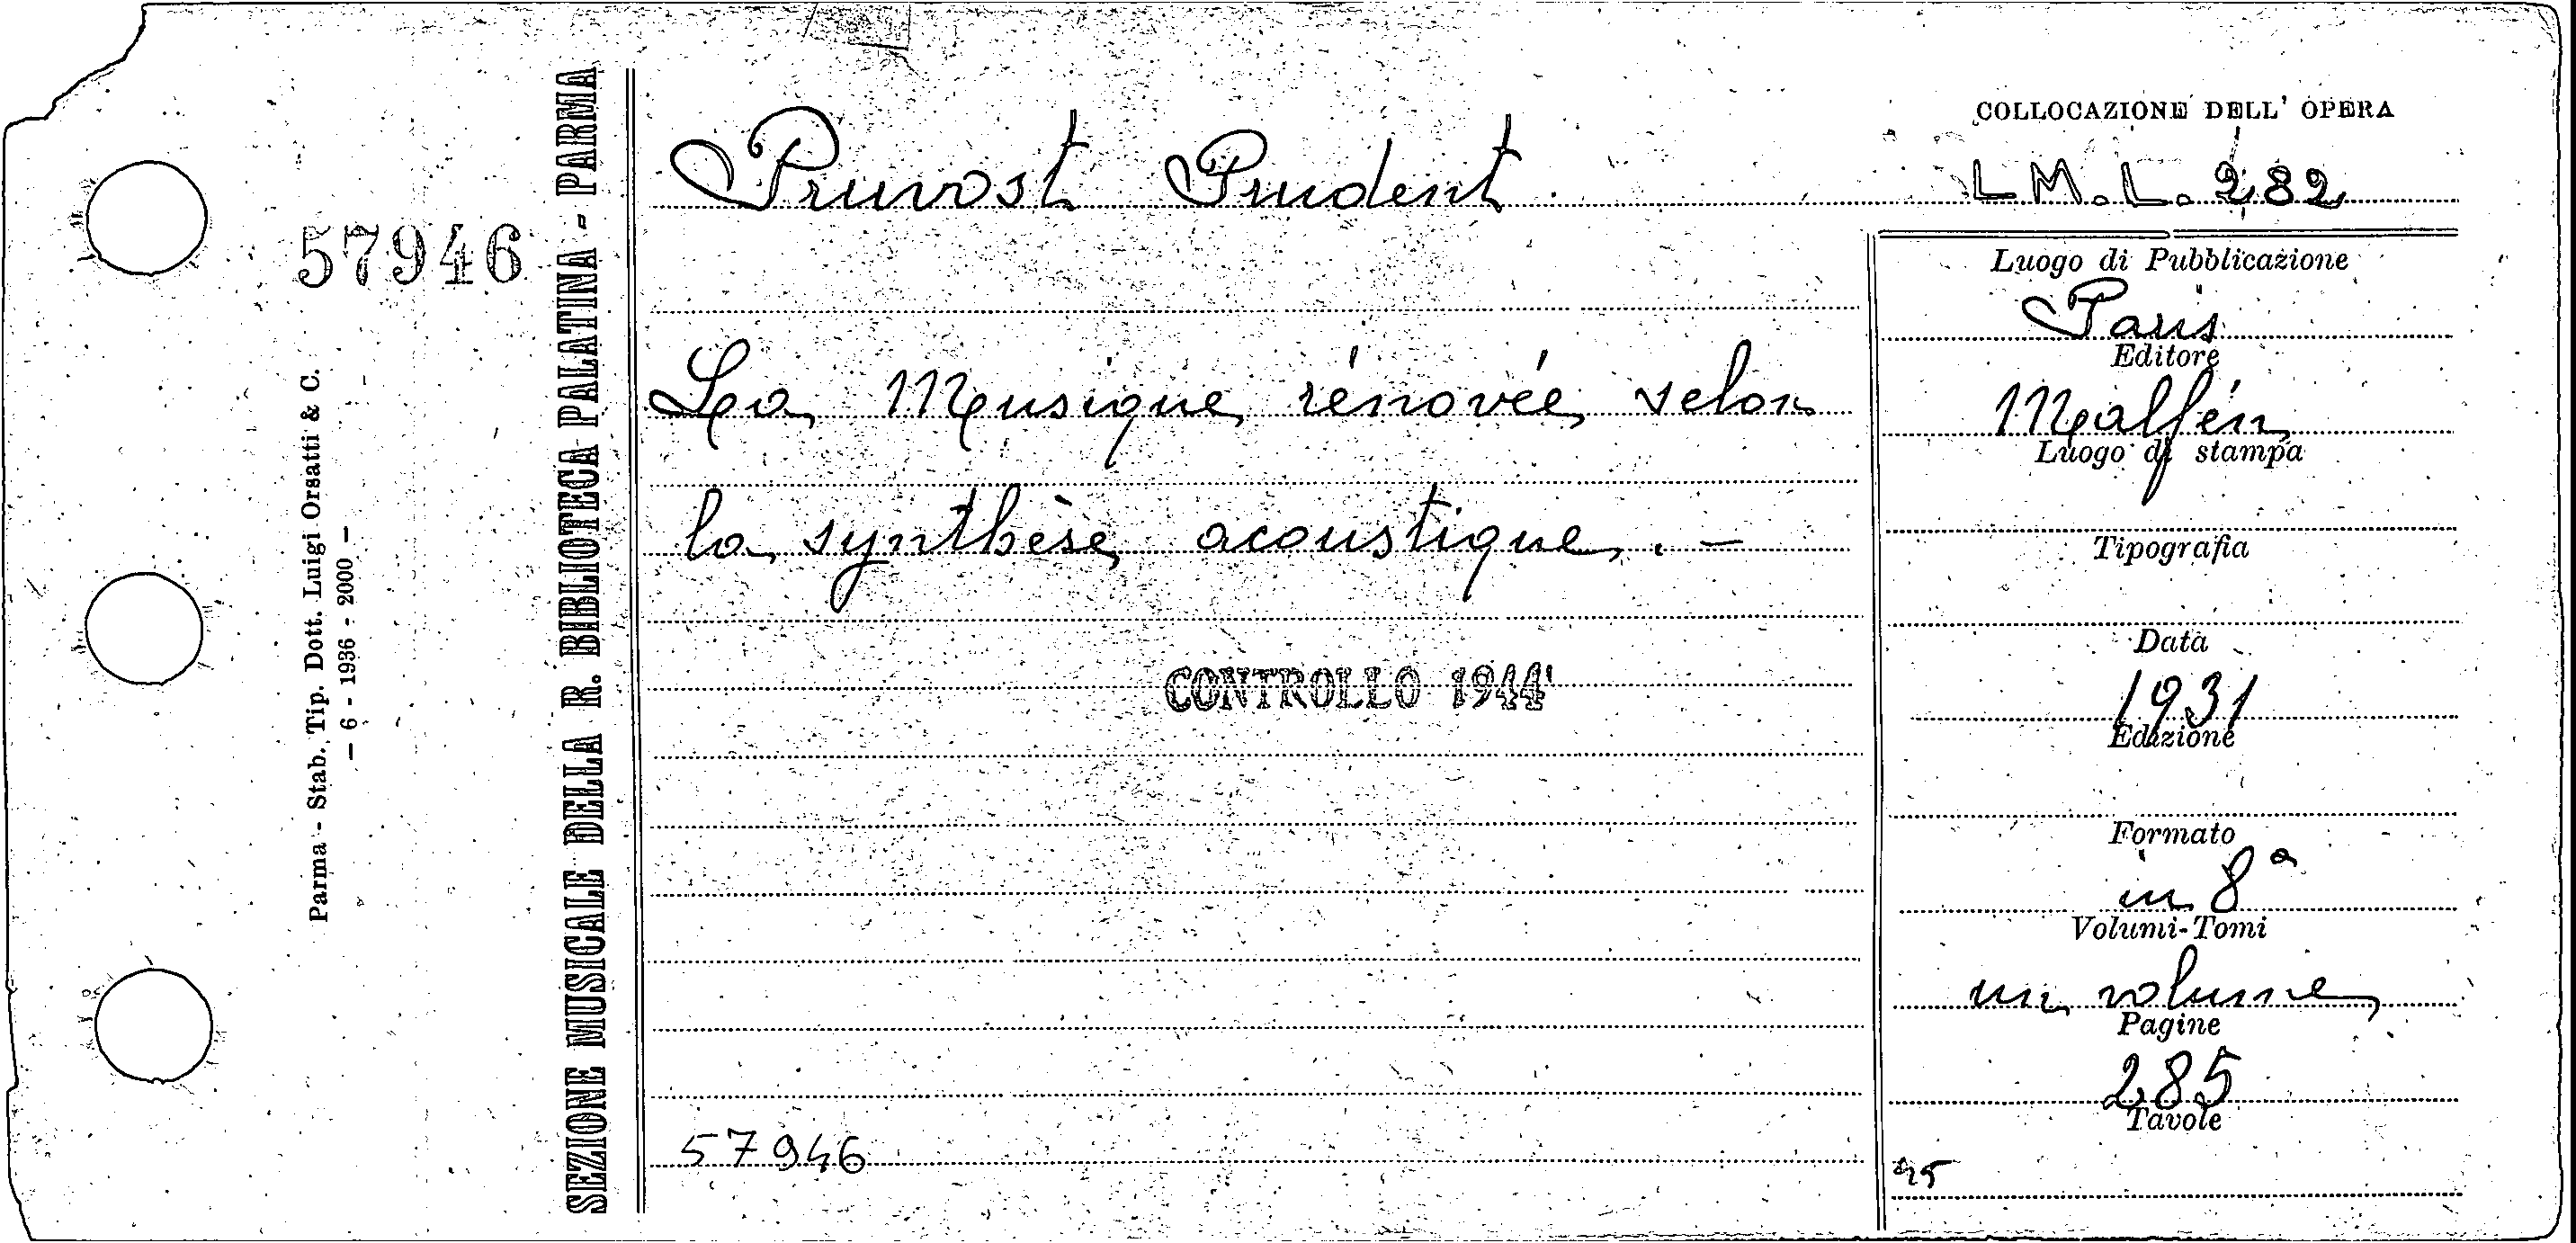 57946
Parma - Stab. Tip. Dott. Luigi Orsatti & C.
— 6 - 1936 - 2000 —
SEZIONE MUSICALE DELLA R. BIBLIOTECA PALATINA - PARMA
Pruvost Prudent
La Musique rénovée selon
la synthèse acoustique. —
CONTROLLO 1944
57946
COLLOCAZIONE DELL' OPERA
L M. L. 282
Luogo di Pubblicazione
Paris
Editore
Malfén
Luogo di stampa
Tipografia
Data
1931
Edizione
Formato
in 8ª
Volumi-Tomi
un volume
Pagine
285
Tavole